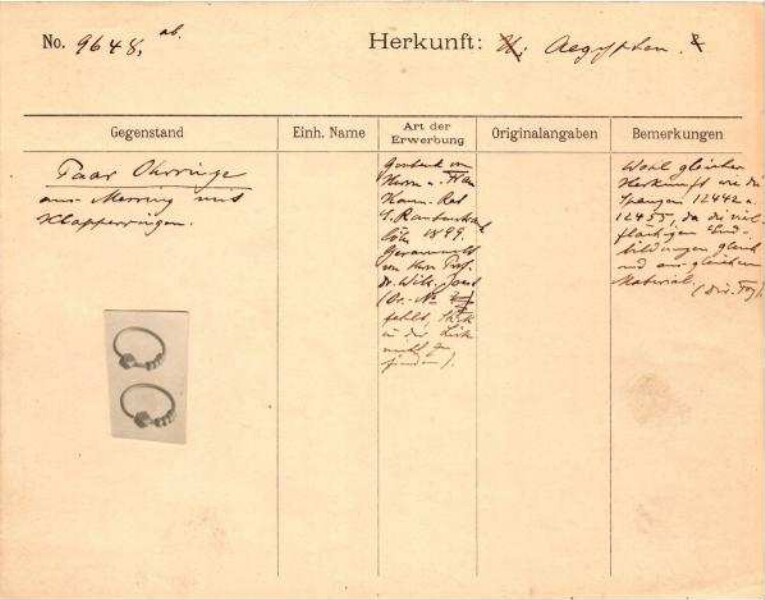 No. 9648, ab.
Herkunft: Aegypten.
Gegenstand
Einh. Name
Art der Erwerbung
Originalangaben
Bemerkungen
Paar Ohrringe
aus Messing mit
Klapperringen.
Geschenk von
Herrn u. Frau
Komm. Rat
E. Rautenstrauch
Cöln 1899.
Gesammelt
von Herrn Prof.
Dr. Wilh. Joest
(Or. No
fehlt, Stück
in der Liste
nicht zu
finden).
Wohl gleicher
Herkunft wie die
Spangen 12442 u.
12455, da die viel-
flächigen End-
bildungen gleich
und aus gleichem
Material.
(Dir. Foy).